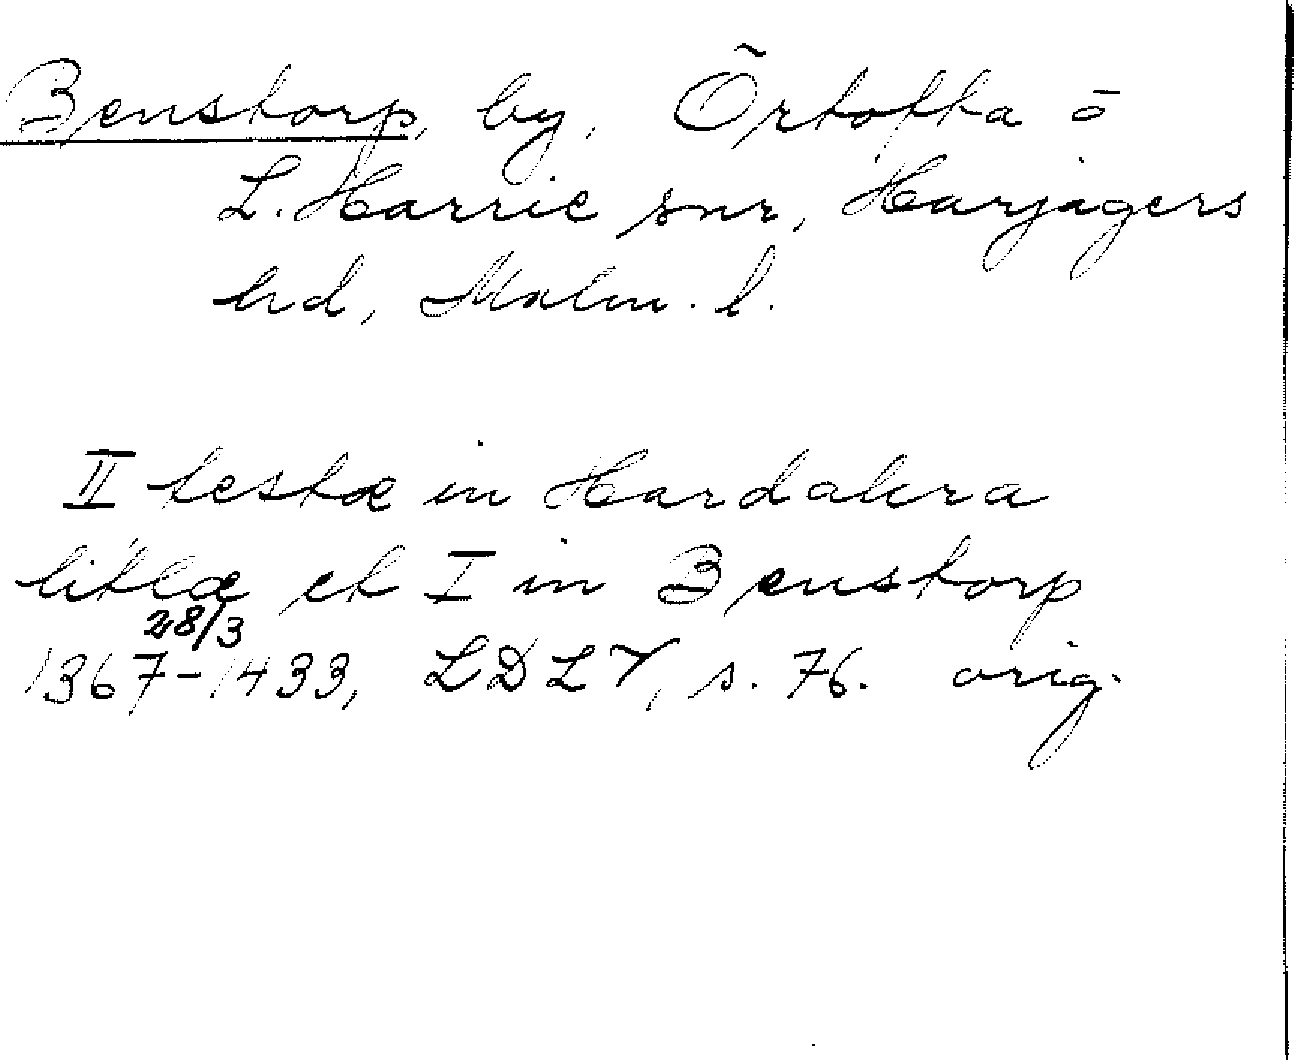 Benstorp, by, Örtofta o
L. Harrie snr, Harjagers
hd, Malm. l.
II testæ in Hardakra
litlæ et I in Benstorp
28/3
1367-1433, LDLV, s. 76. orig.